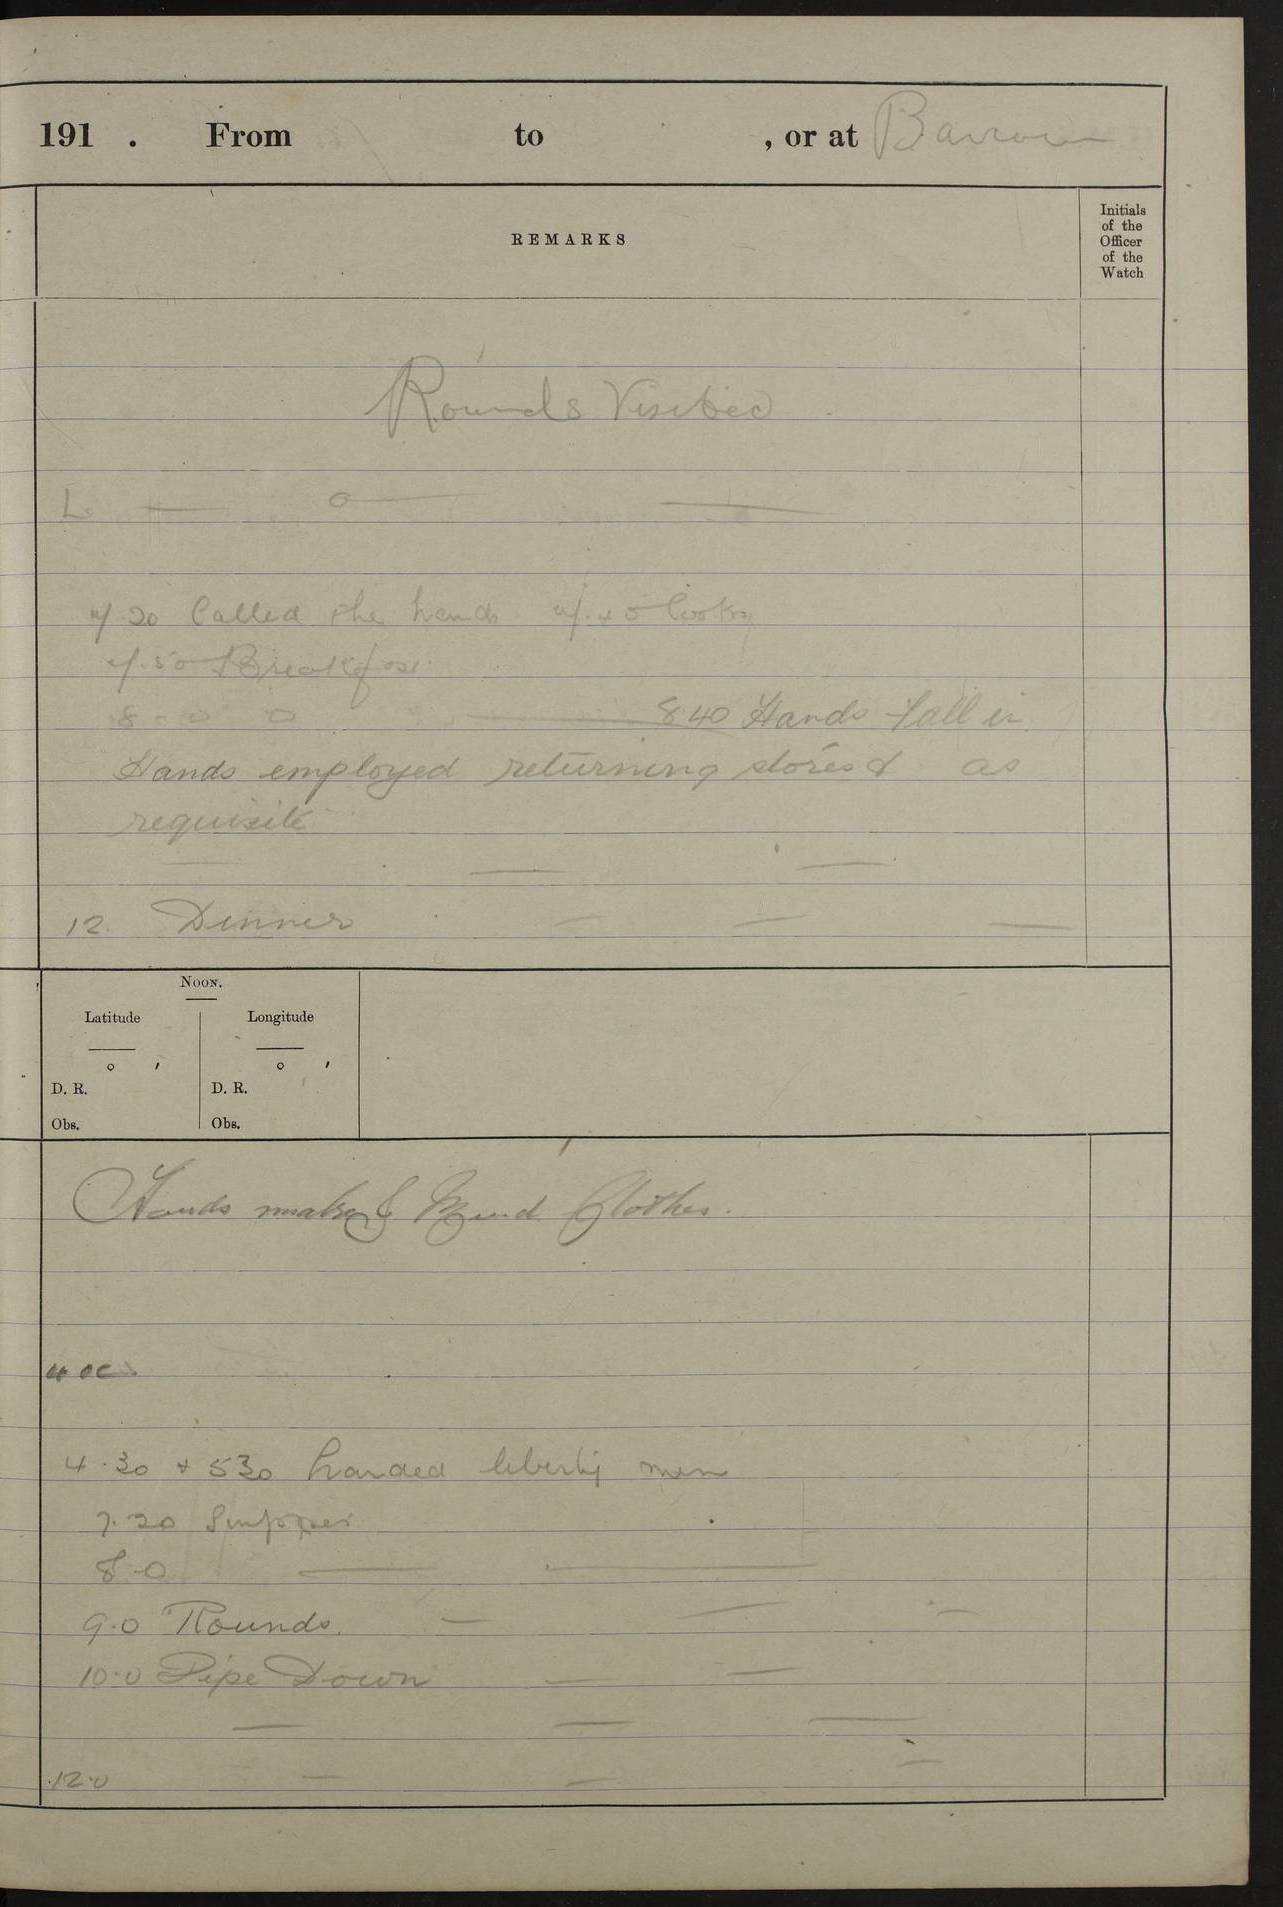 191 . From to , or at Barrow
REMARKS
Initials
of the
Officer
of the
Watch
Rounds Visited
7.20 Called the hands 7.45 Cooks
7.50 Breakfast
8.0 8.40 Hands fall in
Hands employed returning stores & as
requisite
12. Dinner
NOON.
Latitude Longitude
° ′ ° ′
D. R. D. R.
Obs. Obs.
Hands make & Mend Clothes.
4 oc
4.30 + 530 landed liberty men
7.20 Supper
8.0
9.0 Rounds.
10.0 Pipe Down
12.0